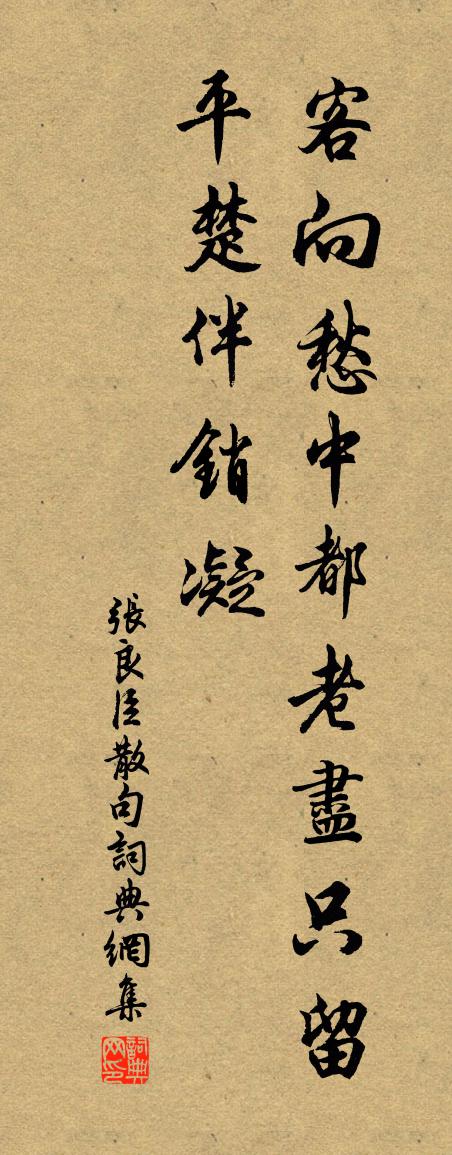 客向愁中都老盡只留
平楚伴銷凝
張良臣散句詞典網集
詞典网印